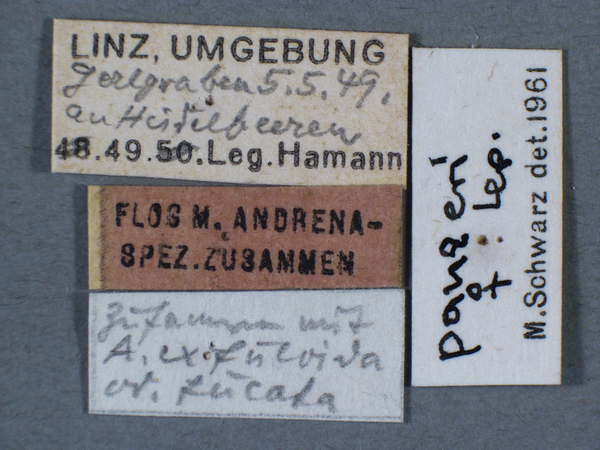 LINZ, UMGEBUNG
Gerlgraben 5.5.49.
an Heidelbeeren
48.49.50.Leg.Hamann
FLOG M. ANDRENA-
SPEZ.ZUSAMMEN
zusammen mit
A.
od. fucata
panzeri
♀ Lep.
M.Schwarz det.1961